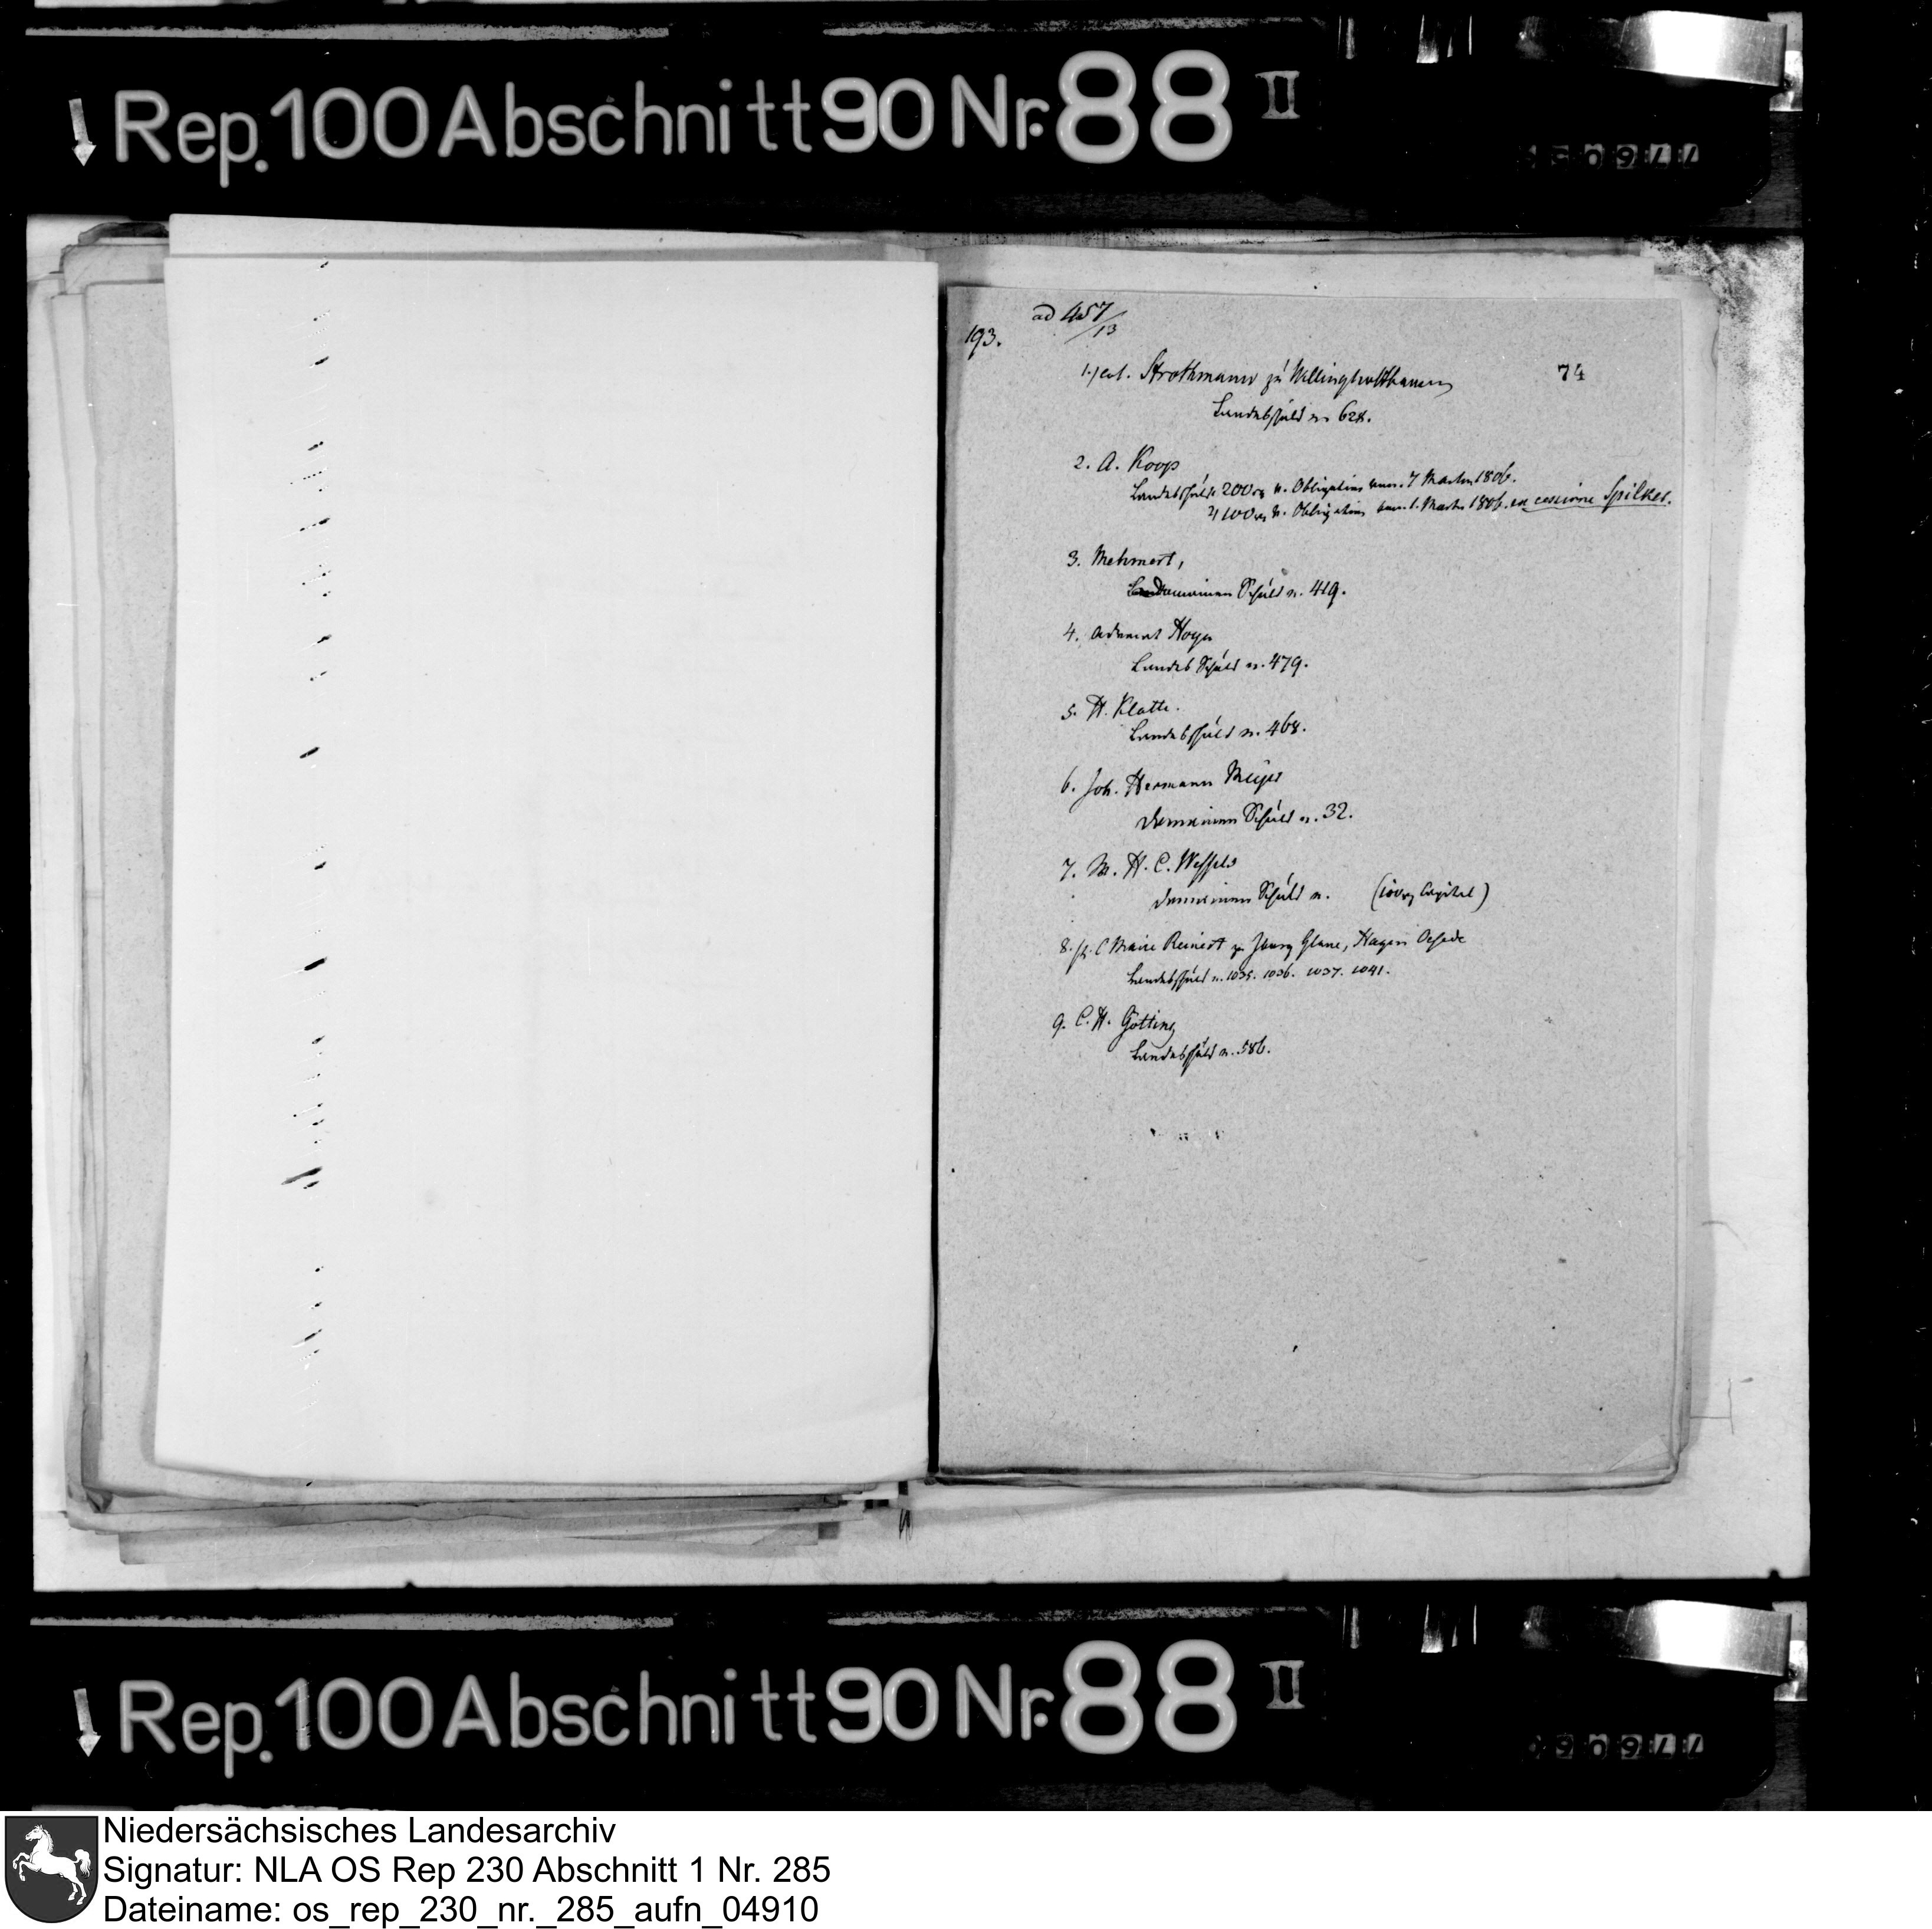 Rep. 100 Abschnitt 90 Nr. 88 II
ad 457/13
193.
74
1.) Strothmann zú Wellingholthausen
Landesschúld n. 628.
2. A. Koop
Landesschúld 200 n. Obligation vom 7 Martii 1806.
2) 100 n. Obligation vom 1. Martii 1806. ex cessione Spilker.
3. Mehmert,
Domainen Schúld n. 419.
4. Advocat Hoyer
Landes Schúld n. 479.
5. H. Klatte.
Landesschúld n. 468.
6. Joh. Hermann Meyer
Domainen Schúld n. 32.
7. M. H. C. Wessels
Domainen Schúld n. (100 Capital)
8. Maire Reinert zu Iburg Glane, Hagen Oesede
Landesschúld n. 1035. 1036. 1037. 1041.
9. C. H. Götting
Landesschúld n. 586.
Rep. 100 Abschnitt 90 Nr. 88 II
Niedersächsisches Landesarchiv
Signatur: NLA OS Rep 230 Abschnitt 1 Nr. 285
Dateiname: os_rep_230_nr._285_aufn_04910